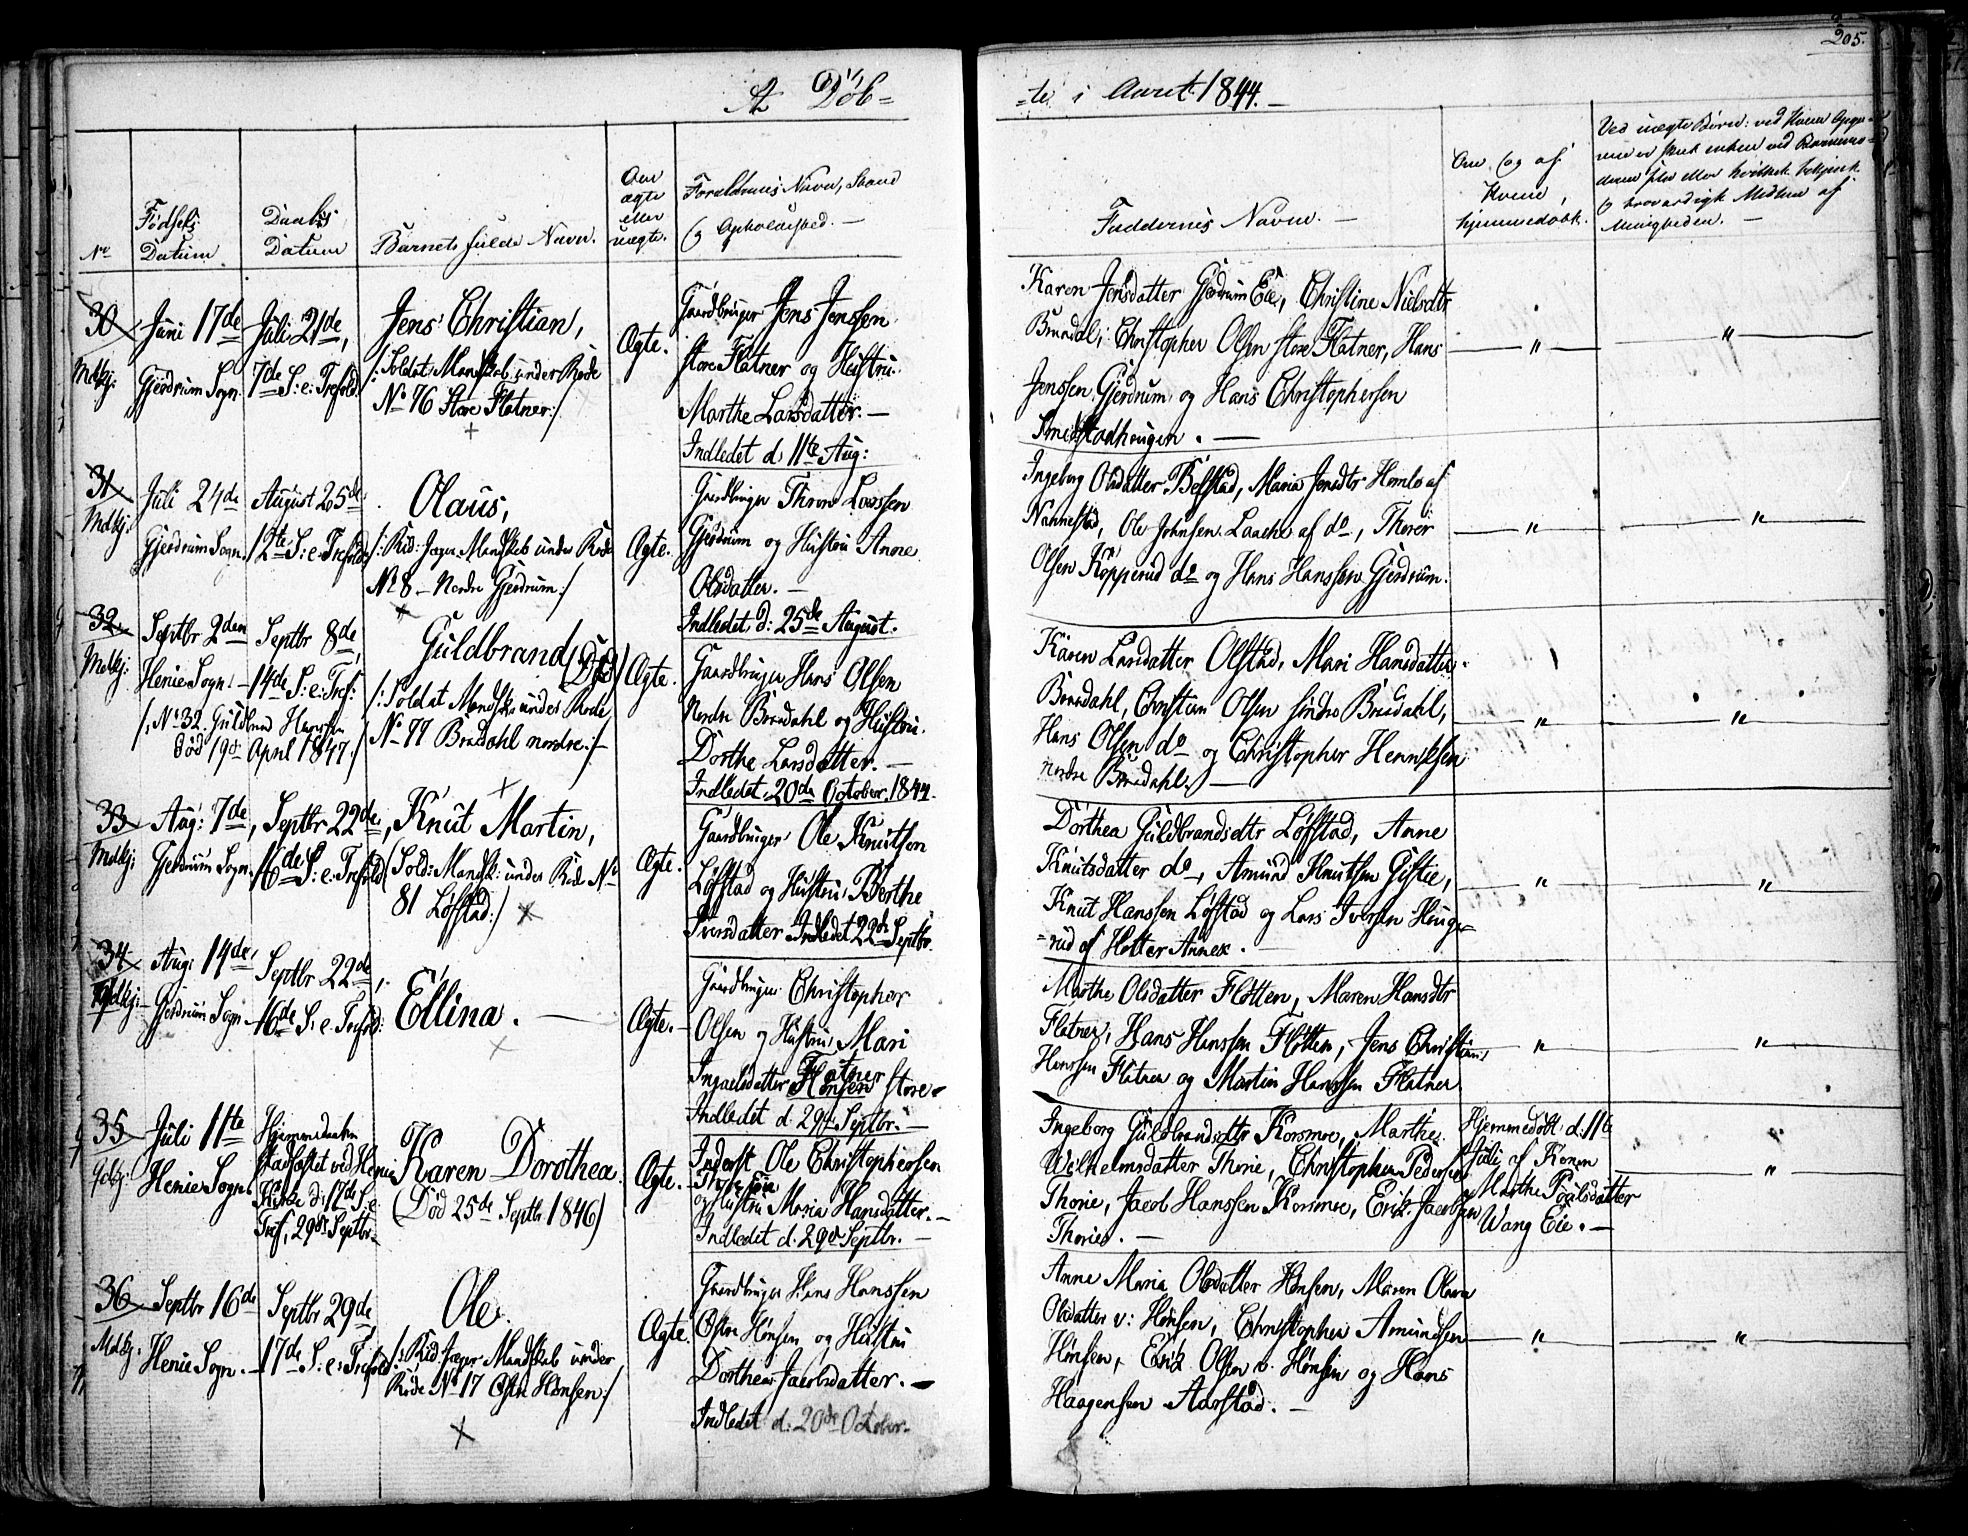 205.
A Döb=
=te i Aaret 1844.
No
Födsels Datum
Daabs Datum
Barnets fulde Navn.
Om ægte eller uægte.
Forældrenes Navn, Stand og Opholdssted. —
Faddernes Navne. —
Om, og af hvem, hjemmedøbt.
Ved uægte Børn: ved hvem
30
Mdkj:
Juni 17de
Gjerdrum Sogn.
Juli 21de,
7de S: e: Trefold:
Jens Christian,
/: Soldat Mandskab under Rode
No 76 Store Flatner :/
Ægte.
Gaardbruger Jens Jenssen
store Flatner og Hustru
Marthe Larsdatter. —
Indledet d. 11te Aug:
Karen Jensdatter Gjerdrum Eie, Christine Nielsdtr
Brudal, Christopher Olsen store Flatner, Hans
Jenssen Gjerdrum og Hans Christophersen
Smedstadhougen. —
— " —
— " —
31
Mdkj:
Juli 24de
Gjerdrum Sogn.
August 25de
12te S: e: Trefold:
Olaus,
/: Rid: Jæger Mandskab under Rode
No 8 – Nordre Gjerdrum :/
Ægte.
Gaardbruger Thron Larssen
Gjerdrum og Hustru Anne
Olsdatter. —
Indledet d: 25de August.
Ingeborg Olsdatter Bølstad, Maria Jensdtr Homle af
Nannestad, Ole Johnsen Laache af do, Thorer
Olsen Kopperud do og Hans Hanssen Gjerdrum.
— " —
— " —
32
Mdkj:
Septbr 2den
Henie Sogn. —
/: No 32. Guldbrand Hanssen
död 19de April 1847 :/
Septbr 8de,
14de S: e: Tref:
Guldbrand (Död)
/: Soldat Mandsk: under Rode
No 77 Bradahl nordre :/
Ægte.
Gaardbruger Hans Olsen
Nordre Bradahl og Hustru
Dorthe Larsdatter. —
Indledet 20de October 1844.
Karen Larsdatter Olstad, Mari Hansdatter
Bradahl, Christian Olsen søndre Bradahl,
Hans Olsen do og Christopher Henriksen
nordre Bradahl. —
— " —
— " —
33
Mdkj:
Aug: 7de,
Gjerdrum Sogn.
Septbr 22de,
16de S: e: Trefold:
Knut Martin,
(Sold: Mandsk: under Rode No
81 Löfstad :/
Ægte.
Gaardbruger Ole Knutsen
Löfstad og Hustru Berthe
Iversdatter Indledet 22de Septbr.
Dorthea Guldbrandsdtr Löfstad, Anne
Knutsdatter do, Amund Knutsen Gistie,
Knut Hanssen Löfstad og Lars Iversen Houge=
=rud af Holter Annex. —
— " —
— " —
34
Aug: 14de,
Gjerdrum Sogn
Septbr 22de,
16de S: e: Trefold:
Ellina. —
Ægte. —
Gaardbruger Christopher
Olsen og Hustru Mari
Flatner
store
Indledet d. 29de Septbr. —
Marthe Olsdatter Flotten, Maren Hansdtr
Flatner, Hans Hanssen Flotten, Jens Christian
Hanssen Flatner og Martin Hanssen Flatner.
— " —
— " —
35
Juli 11te
Henie Sogn
Hjemmedaaben
stadfæstet ved Henie
Kirke d: 17de S: e:
Tref, 29de Septbr.
Karen Dorothea.
(Död 25de Septbr 1846)
Ægte.
Inderst Ole Christophersen
og Hustru Maria Hansdatter. —
Indledet d. 29de Septbr. —
Ingeborg Guldbrandsdtr Korsmoe, Marthe
Wilhelmsdatter Thorie, Christopher Pedersen
Thorie, Jacob Hanssen Korsmoe, Erik Jacobsen
Thorie. —
Hjemmedöbt d. 11te
Juli af Konen
Marthe Poulsdatter
Wang Eie. —
— " —
36
Mdkj:
Septbr 16de
Henie Sogn. —
Septbr 29de
17de S: e: Trefold:
Ole
/: Rid: Jæger Mandskab under
Rode No 17 Östre Hönsen :/
Ægte.
Gaardbruger Hans Hanssen
Östre Hönsen og Hustru
Dorthea Jacobsdatter. —
Indledet d: 20de October.
Anne Maria Olsdatter Hönsen, Maren Olava
Olsdatter v: Hönsen, Christopher Amundsen
Hönsen, Erik Olsen v. Hönsen og Hans
Haagensen Aarstad. —
— " —
— " —